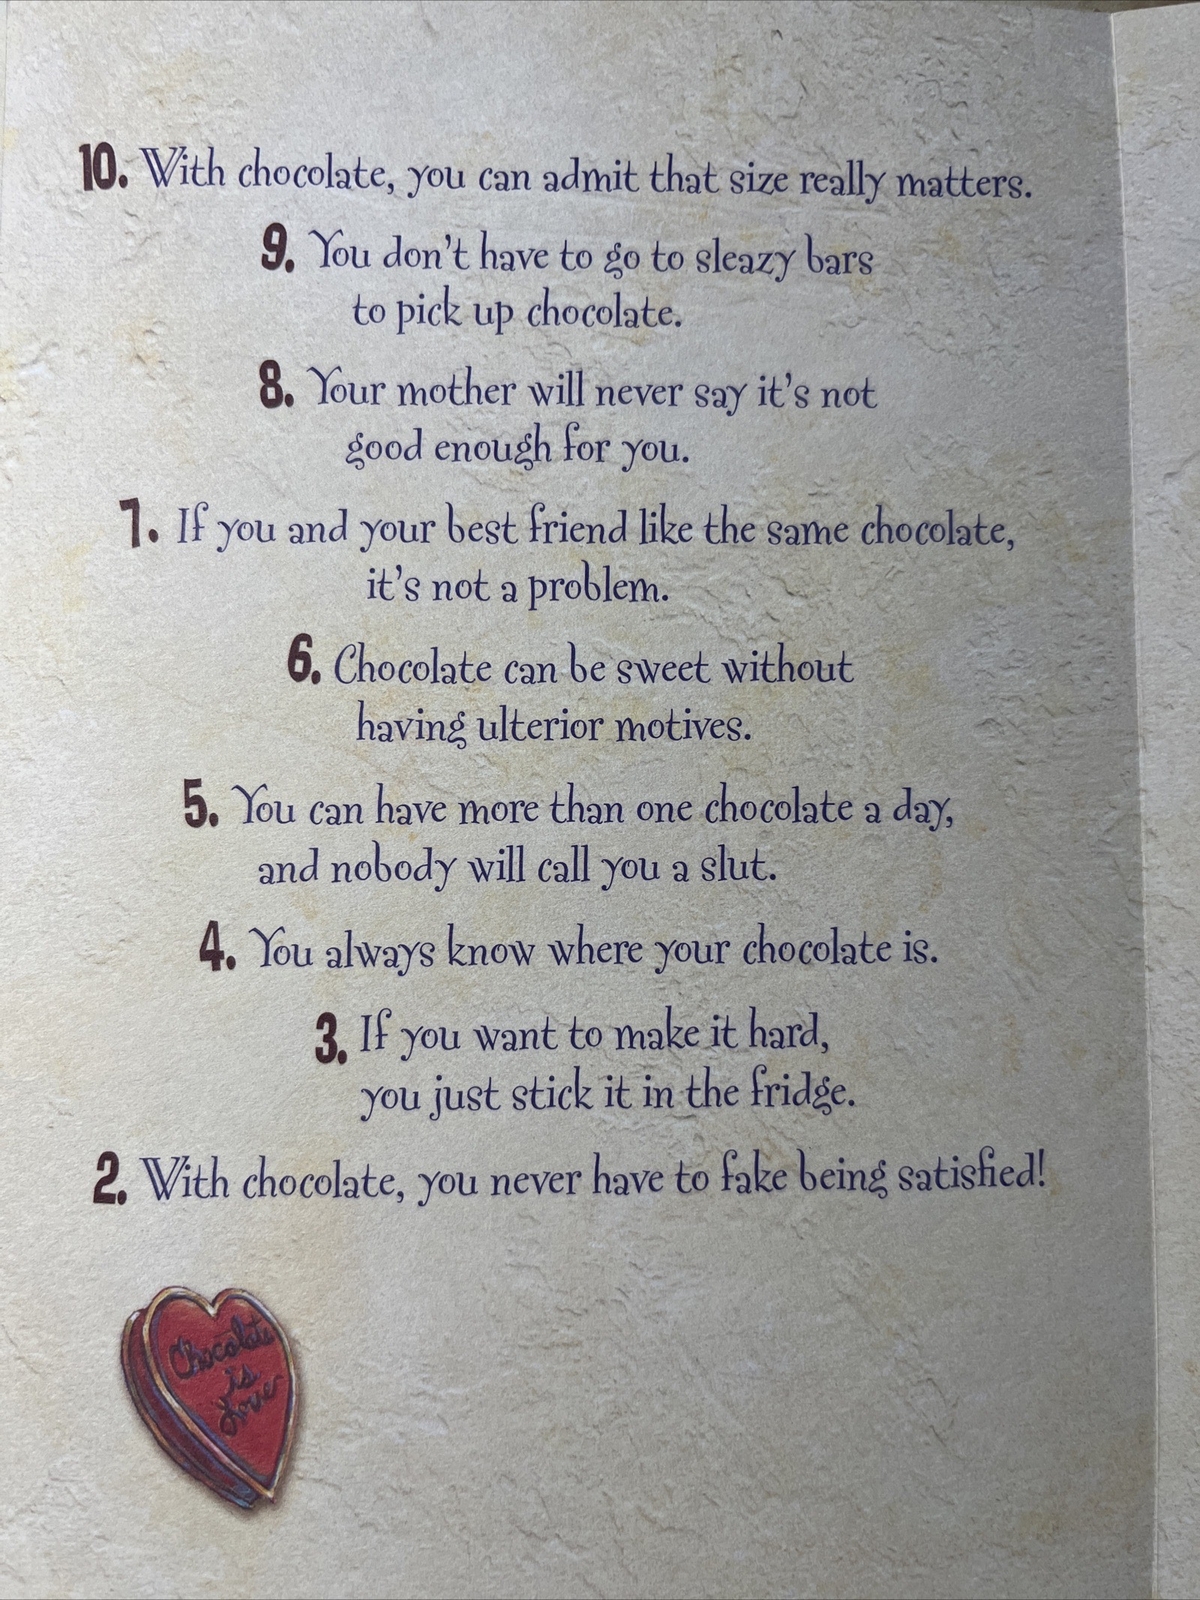 10. With chocolate, you can admit that size really matters.
9. You don't have to go to sleazy bars
to pick up chocolate.
8. Your mother will never say it's not
good enough for you.
7. If you and your best friend like the same chocolate,
it's not a problem.
6. Chocolate can be sweet without
having ulterior motives.
5. You can have more than one chocolate a day,
and nobody will call you a slut.
4. You always know where your chocolate is.
3. If you want to make it hard,
you just stick it in the fridge.
2. With chocolate, you never have to fake being satisfied!
Chocolate
is
Love